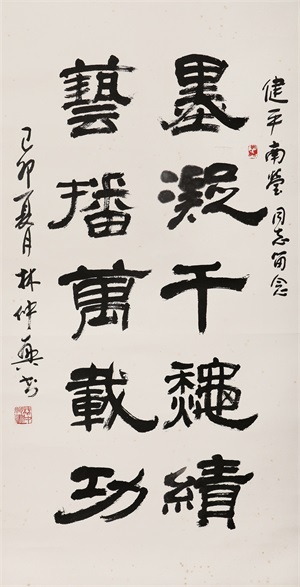 健平南瑩同志留念
墨凝千龝績
藝播萬載功
己卯夏月林仲興书